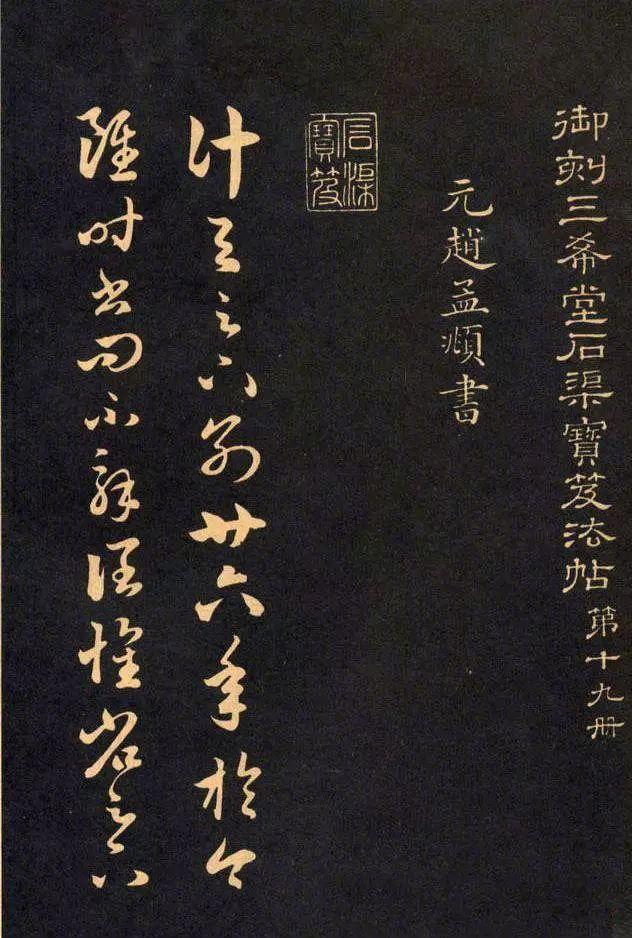 御刻三希堂石渠寶笈法帖 第十九冊
元趙孟頫書
石渠寶笈
計與足下別廿六年於今
雖時書問不解闊懷省足下